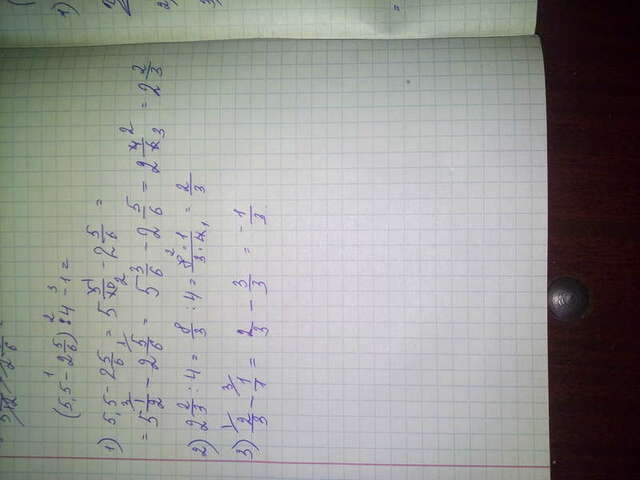 (5,5 - 2 5/6) : 4 - 1 =
1) 5,5 - 2 5/6 = 5 5/10 - 2 5/6 =
= 5 1/2 - 2 5/6 = 5 3/6 - 2 5/6 = 2 4/6 = 2 2/3
2) 2 2/3 : 4 = 8/3 : 4 = 8·1/3·4 = 2/3
3) 2/3 - 1/1 = 2/3 - 3/3 = -1/3